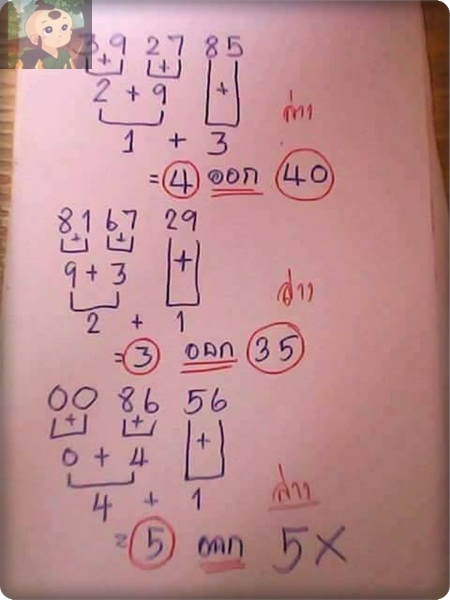 39 27 85
+ + +
2 + 9
1 + 3 ล่าง
= 4 ออก 40
81 67 29
+ + +
9 + 3
2 + 1 ล่าง
= 3 ออก 35
00 86 56
+ + +
0 + 4
4 + 1 ล่าง
= 5 ออก 5X